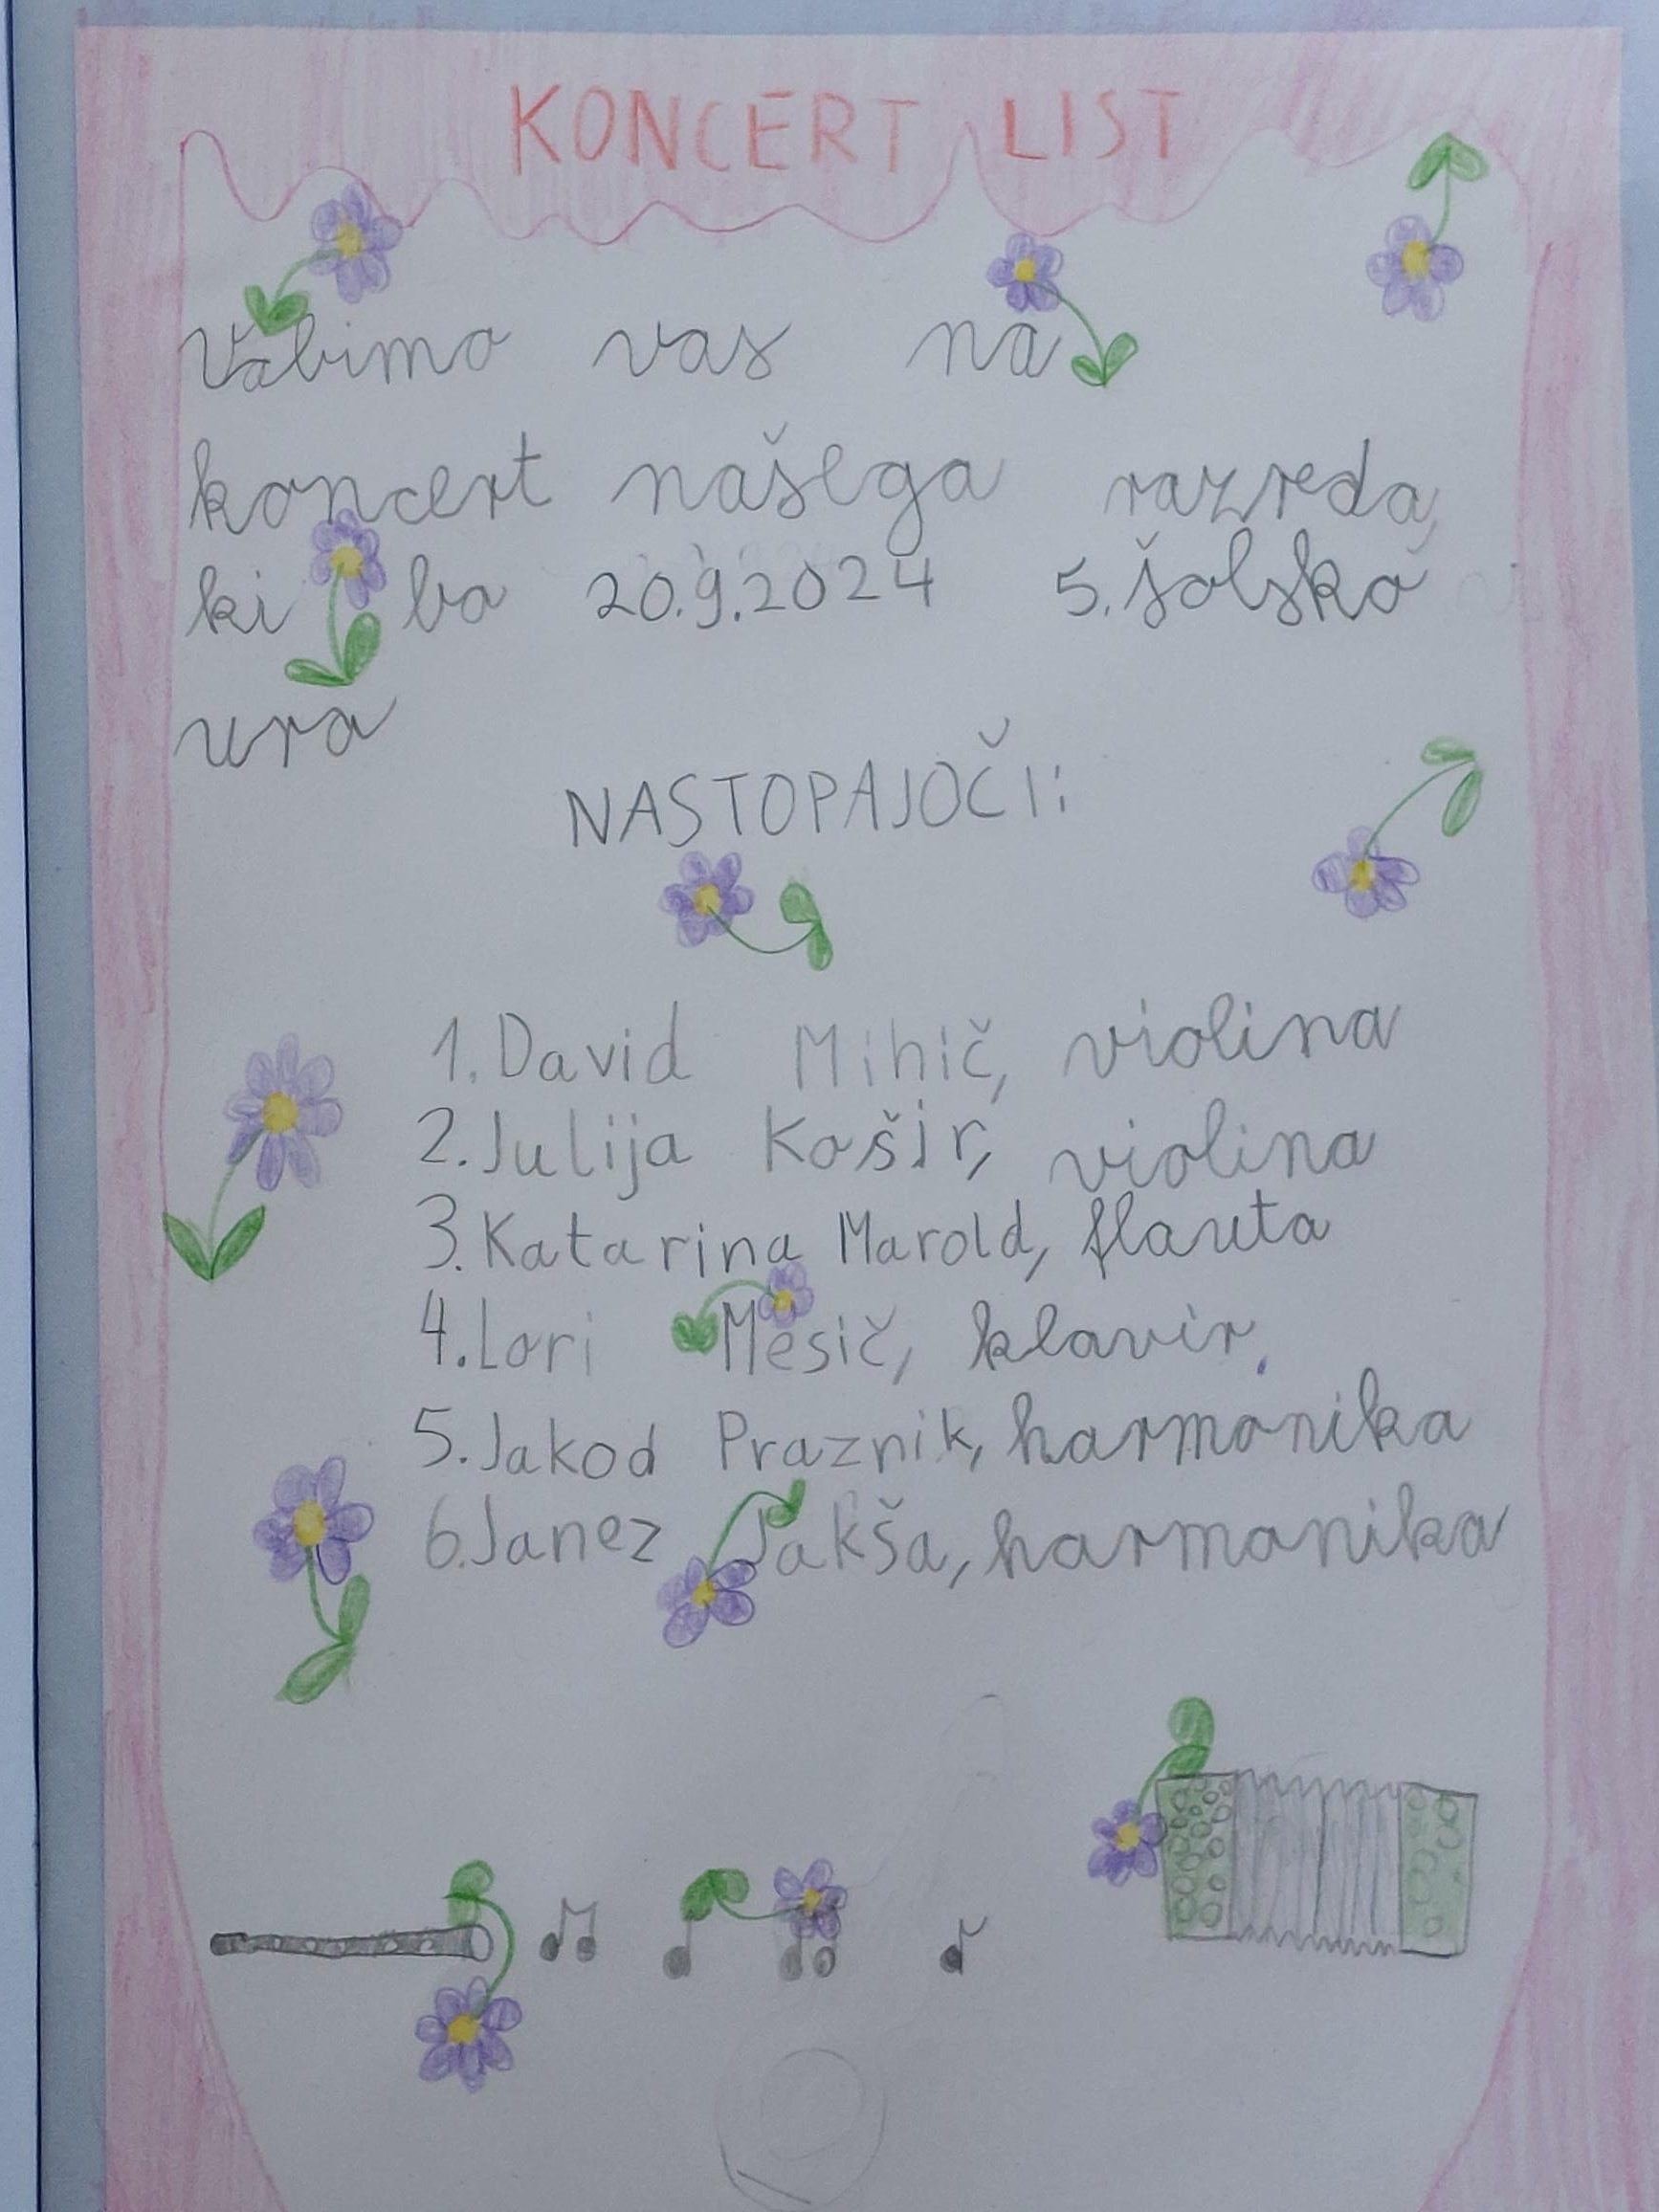 KONCERT LIST
Vabimo vas na
koncert našega razreda,
ki bo 20.9.2024 5. šolsko
uro
NASTOPAJOČI:
1. David Mihič, violina
2. Julija Košir, violina
3. Katarina Marold, flauta
4. Lori Mesič, klavir,
5. Jakod Praznik, harmonika
6. Janez Jakša, harmonika